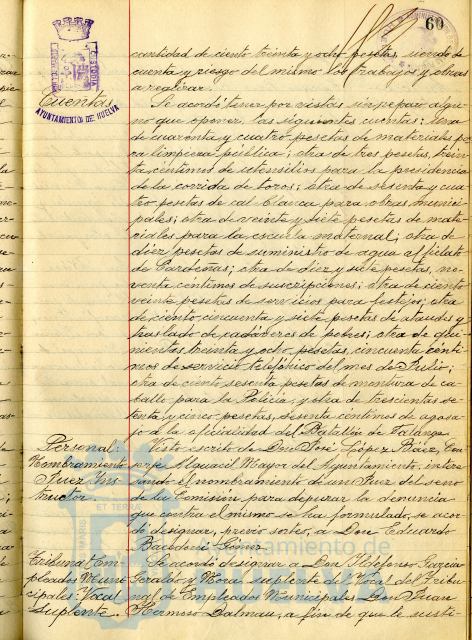 60
cantidad de ciento treinta y ocho pesetas, siendo de
cuenta y riesgo del mismo los trabajos y obras
a realizar.
Cuentas
AYUNTAMIENTO DE HUELVA
Se acordó tener por vistas sin reparo algu-
no que oponer, las siguientes cuentas: una
de cuarenta y cuatro pesetas de materiales pa-
ra limpieza pública; otra de tres pesetas, trein-
ta céntimos de utensilios para la presidencia
de la corrida de toros; otra de sesenta y cua-
tro pesetas de cal blanca para obras munici-
pales; otra de veinte y siete pesetas de mate-
riales para la escuela maternal; otra de
diez pesetas de suministro de agua al fielato
de Cardeñas; otra de diez y siete pesetas, no-
venta céntimos de suscripciones; otra de ciento
veinte pesetas de servicios para festejos; otra
de ciento cincuenta y siete pesetas de ataudes y
traslado de cadáveres de pobres; otra de qui-
nientas treinta y ocho pesetas, cincuenta cénti-
mos de servicio telefónico del mes de Julio;
otra de ciento sesenta pesetas de montura de ca-
ballo para la Policía; y otra de trescientas se-
tenta y cinco pesetas, sesenta céntimos de agasa-
jo a la oficialidad del Batallón de Falange.
Personal
Nombramiento
Juez Ins-
tructor
Visto escrito de Don José López Báez, Con-
serje Alguacil Mayor del Ayuntamiento, intere-
sando el nombramiento de un Juez del seno
de la Comisión para depurar la denuncia
que contra el mismo se ha formulado, se acor-
dó designar, previo sorteo, a Don Eduardo
Tribunal Em-
pleados Muni-
cipales Vocal
Suplente.
Se acordó designar a Don Ildefonso García
y Mora suplente del Vocal del Tribu-
nal de Empleados Municipales Don Juan
Hermoso Dalmau, a fin de que le susti-
ET TERRA
Ayuntamiento de